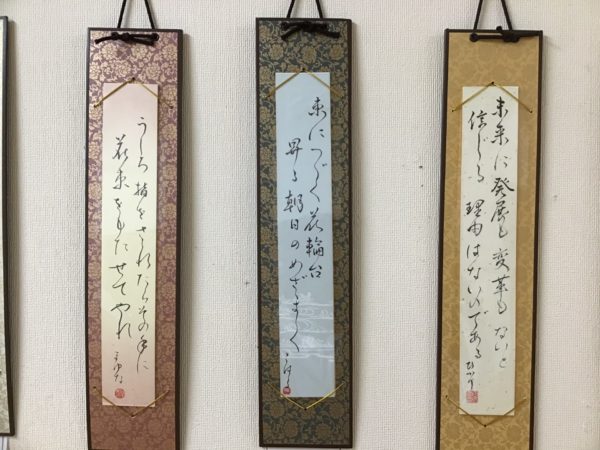 未来に発展も変革もないと
信じる理由はないのである
東につゞく花輪台
昇る朝日のめざましく
うしろ指をさゝれたらその手に
花束をもたせてやれ